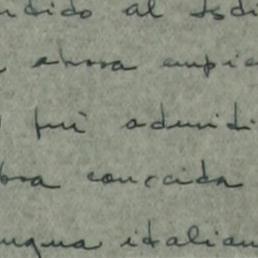 ndido al
ahora empie
fui admidi
bra conocida
ngua italian